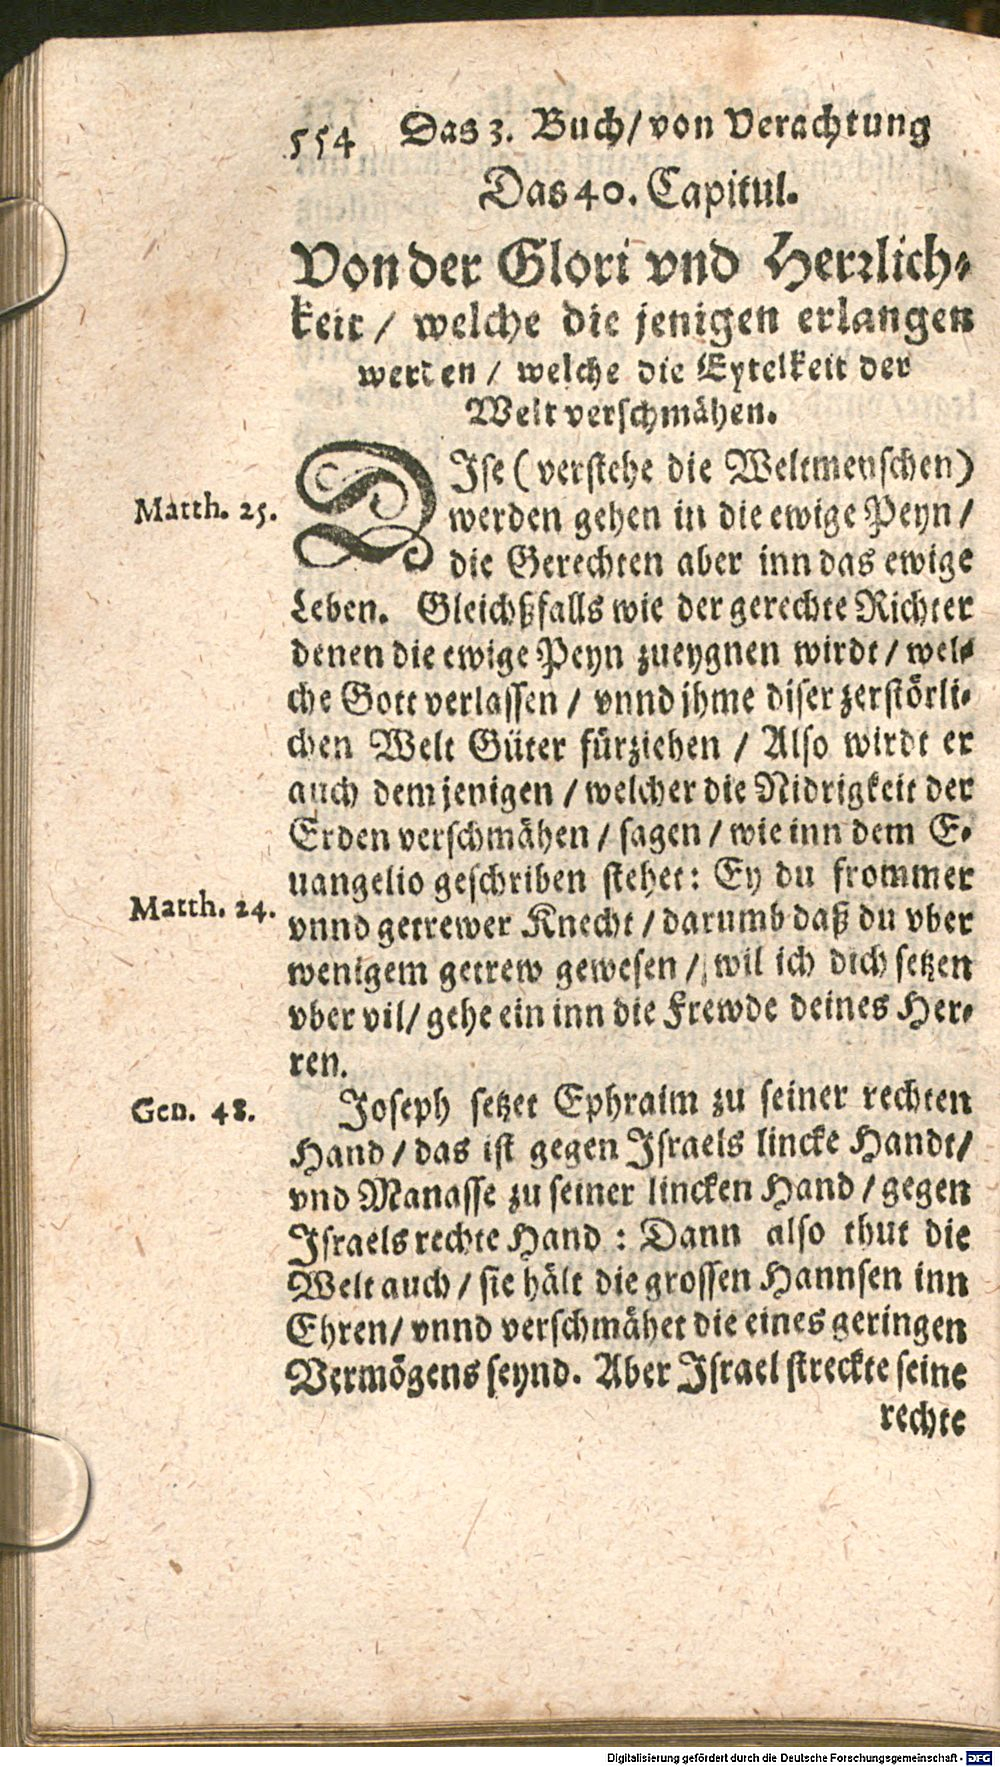 554 Das 3. Buch/ von Verachtung
Das 40. Capitul.
Von der Glori vnd Herrlich-
keit / welche die jenigen erlangen
werden / welche die Eytelkeit der
Welt verschmähen.
DIse ( verstehe die Weltmenschen)
Matth. 25. werden gehen in die ewige Peyn /
die Gerechten aber inn das ewige
Leben. Gleichßfalls wie der gerechte Richter
denen die ewige Peyn zueygnen wirdt / wel-
che Gott verlassen / vnnd jhme diser zerstörli-
chen Welt Güter fürziehen / Also wirdt er
auch dem jenigen / welcher die Nidrigkeit der
Erden verschmähen / sagen / wie inn dem E-
uangelio geschriben stehet: Ey du frommer
Matth. 24. vnnd getrewer Knecht / darumb daß du vber
wenigem getrew gewesen / wil ich dich setzen
vber vil/ gehe ein inn die Frewde deines Her-
ren.
Gen. 48. Joseph setzet Ephraim zu seiner rechten
Hand / das ist gegen Israels lincke Handt/
vnd Manasse zu seiner lincken Hand / gegen
Israels rechte Hand : Dann also thut die
Welt auch / sie hält die grossen Hannsen inn
Ehren/ vnnd verschmähet die eines geringen
Vermögens seynd. Aber Israel streckte seine
rechte
Digitalisierung gefördert durch die Deutsche Forschungsgemeinschaft - DFG